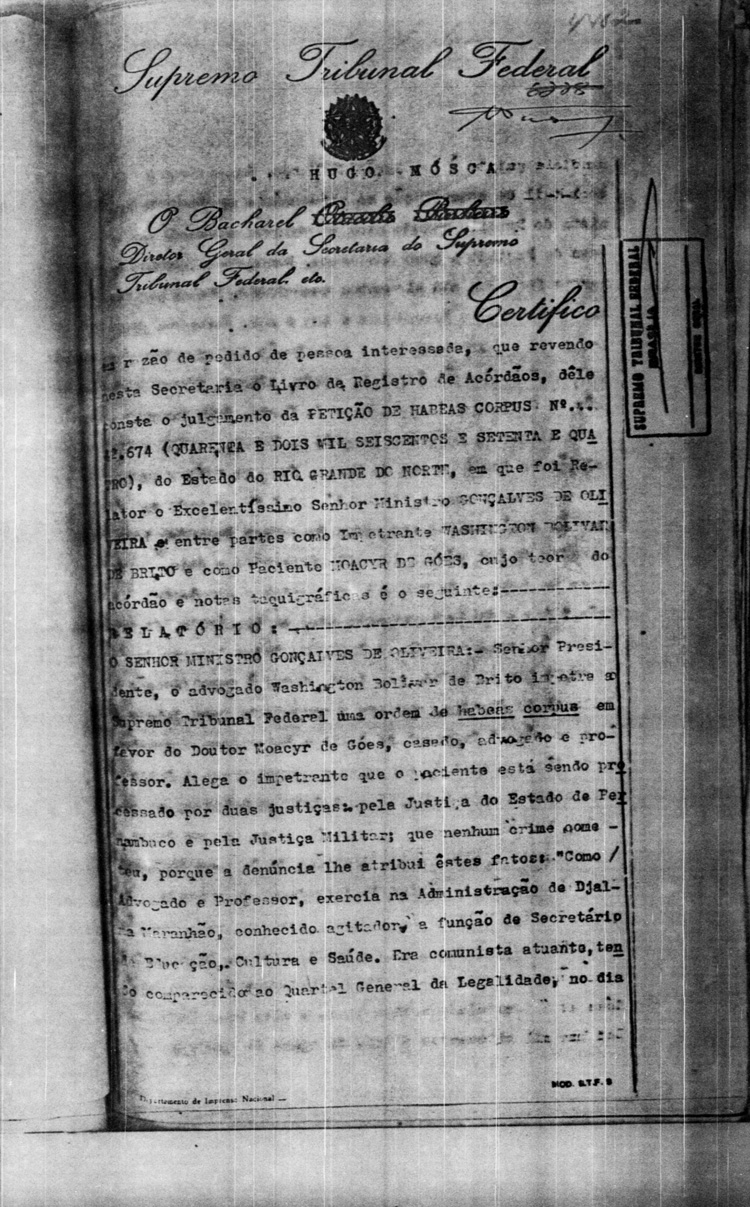 Supremo Tribunal Federal
HUGO MÓSCA
O Bacharel
Diretor Geral da Secretaria do Supremo
Tribunal Federal, etc.
Certifico
SUPREMO TRIBUNAL FEDERAL
BRASILIA
r zão de pedido de pessoa interessada, que revendo
nesta Secretaria o Livro de Registro de Acórdãos, dêle
consta o julgamento da PETIÇÃO DE HABEAS CORPUS Nº...
2.674 (QUARENTA E DOIS MIL SEISCENTOS E SETENTA E QUA
TRO), do Estado do RIO GRANDE DO NORTE, em que foi Re-
lator o Excelentíssimo Senhor Ministro GONÇALVES DE OLI
VEIRA e entre partes como Impetrante WASHINGTON BOLIVAR
DE BRITO e como Paciente MOACYR DE GÓES, cujo teor do
acórdão e notas taquigráficas é o seguinte:-----------
RELATÓRIO:-----------
O SENHOR MINISTRO GONÇALVES DE OLIVEIRA:- Senhor Presi-
dente, o advogado Washington Bolivar de Brito impetra a
Supremo Tribunal Federal uma ordem de habeas corpus em
favor do Doutor Moacyr de Góes, casado, advogado e pro-
fessor. Alega o impetrante que o paciente está sendo pro
cessado por duas justiças: pela Justiça do Estado de Per
nambuco e pela Justiça Militar; que nenhum crime come -
teu, porque a denúncia lhe atribui êstes fatos: "Como /
Advogado e Professor, exercia na Administração de Djal-
ma Maranhão, conhecido agitador, a função de Secretário
de Educação, Cultura e Saúde. Era comunista atuante, ten
do comparecido ao Quartel General da Legalidade, no dia
Departamento de Imprensa Nacional —
MOD. S.T.F. 8